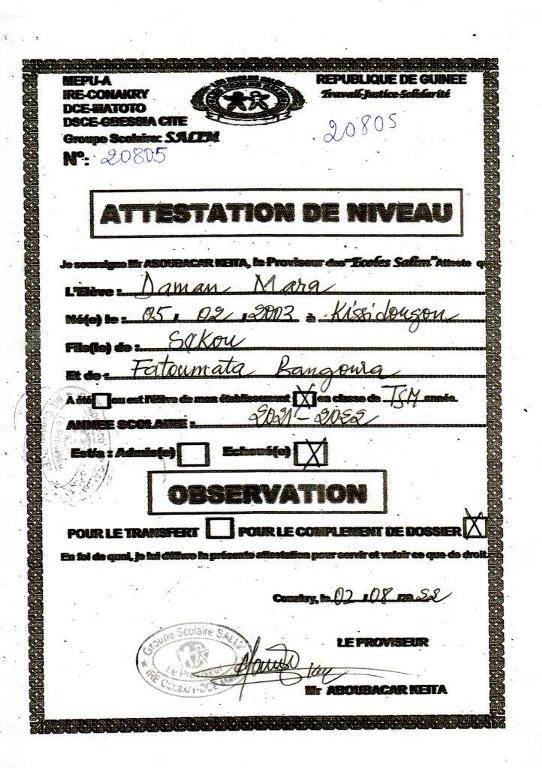 MEPU-A
IRE-CONAKRY
DCE-MATOTO
DSCE-GBESSIA CITE
Groupe Scolaire: SALIM
N°: 20805
REPUBLIQUE DE GUINEE
Travail-Justice-Solidarité
20805
ATTESTATION DE NIVEAU
Je soussigne Mr ABOUBACAR KEITA, le Proviseur des "Ecoles Salim" Atteste q
L'Elève : Daman Mara
Né(e) le : 05 . 02 . 2003 à Kissidougou
Fils(le) de : Sékou
Et de : Fatoumata Bangoura
A été ou est l'élève de mon établissement X en classe de TSM année.
ANNEE SCOLAIRE : 2021-2022
Est/a : Admis(e) Echoué(e) X
OBSERVATION
POUR LE TRANSFERT POUR LE COMPLEMENT DE DOSSIER X
En foi de quoi, je lui délivre la présente attestation pour servir et valoir ce que de droit.
Conakry, le 02 . 08 . 22
LE PROVISEUR
Groupe Scolaire SALIM
Le Proviseur
Mr ABOUBACAR KEITA